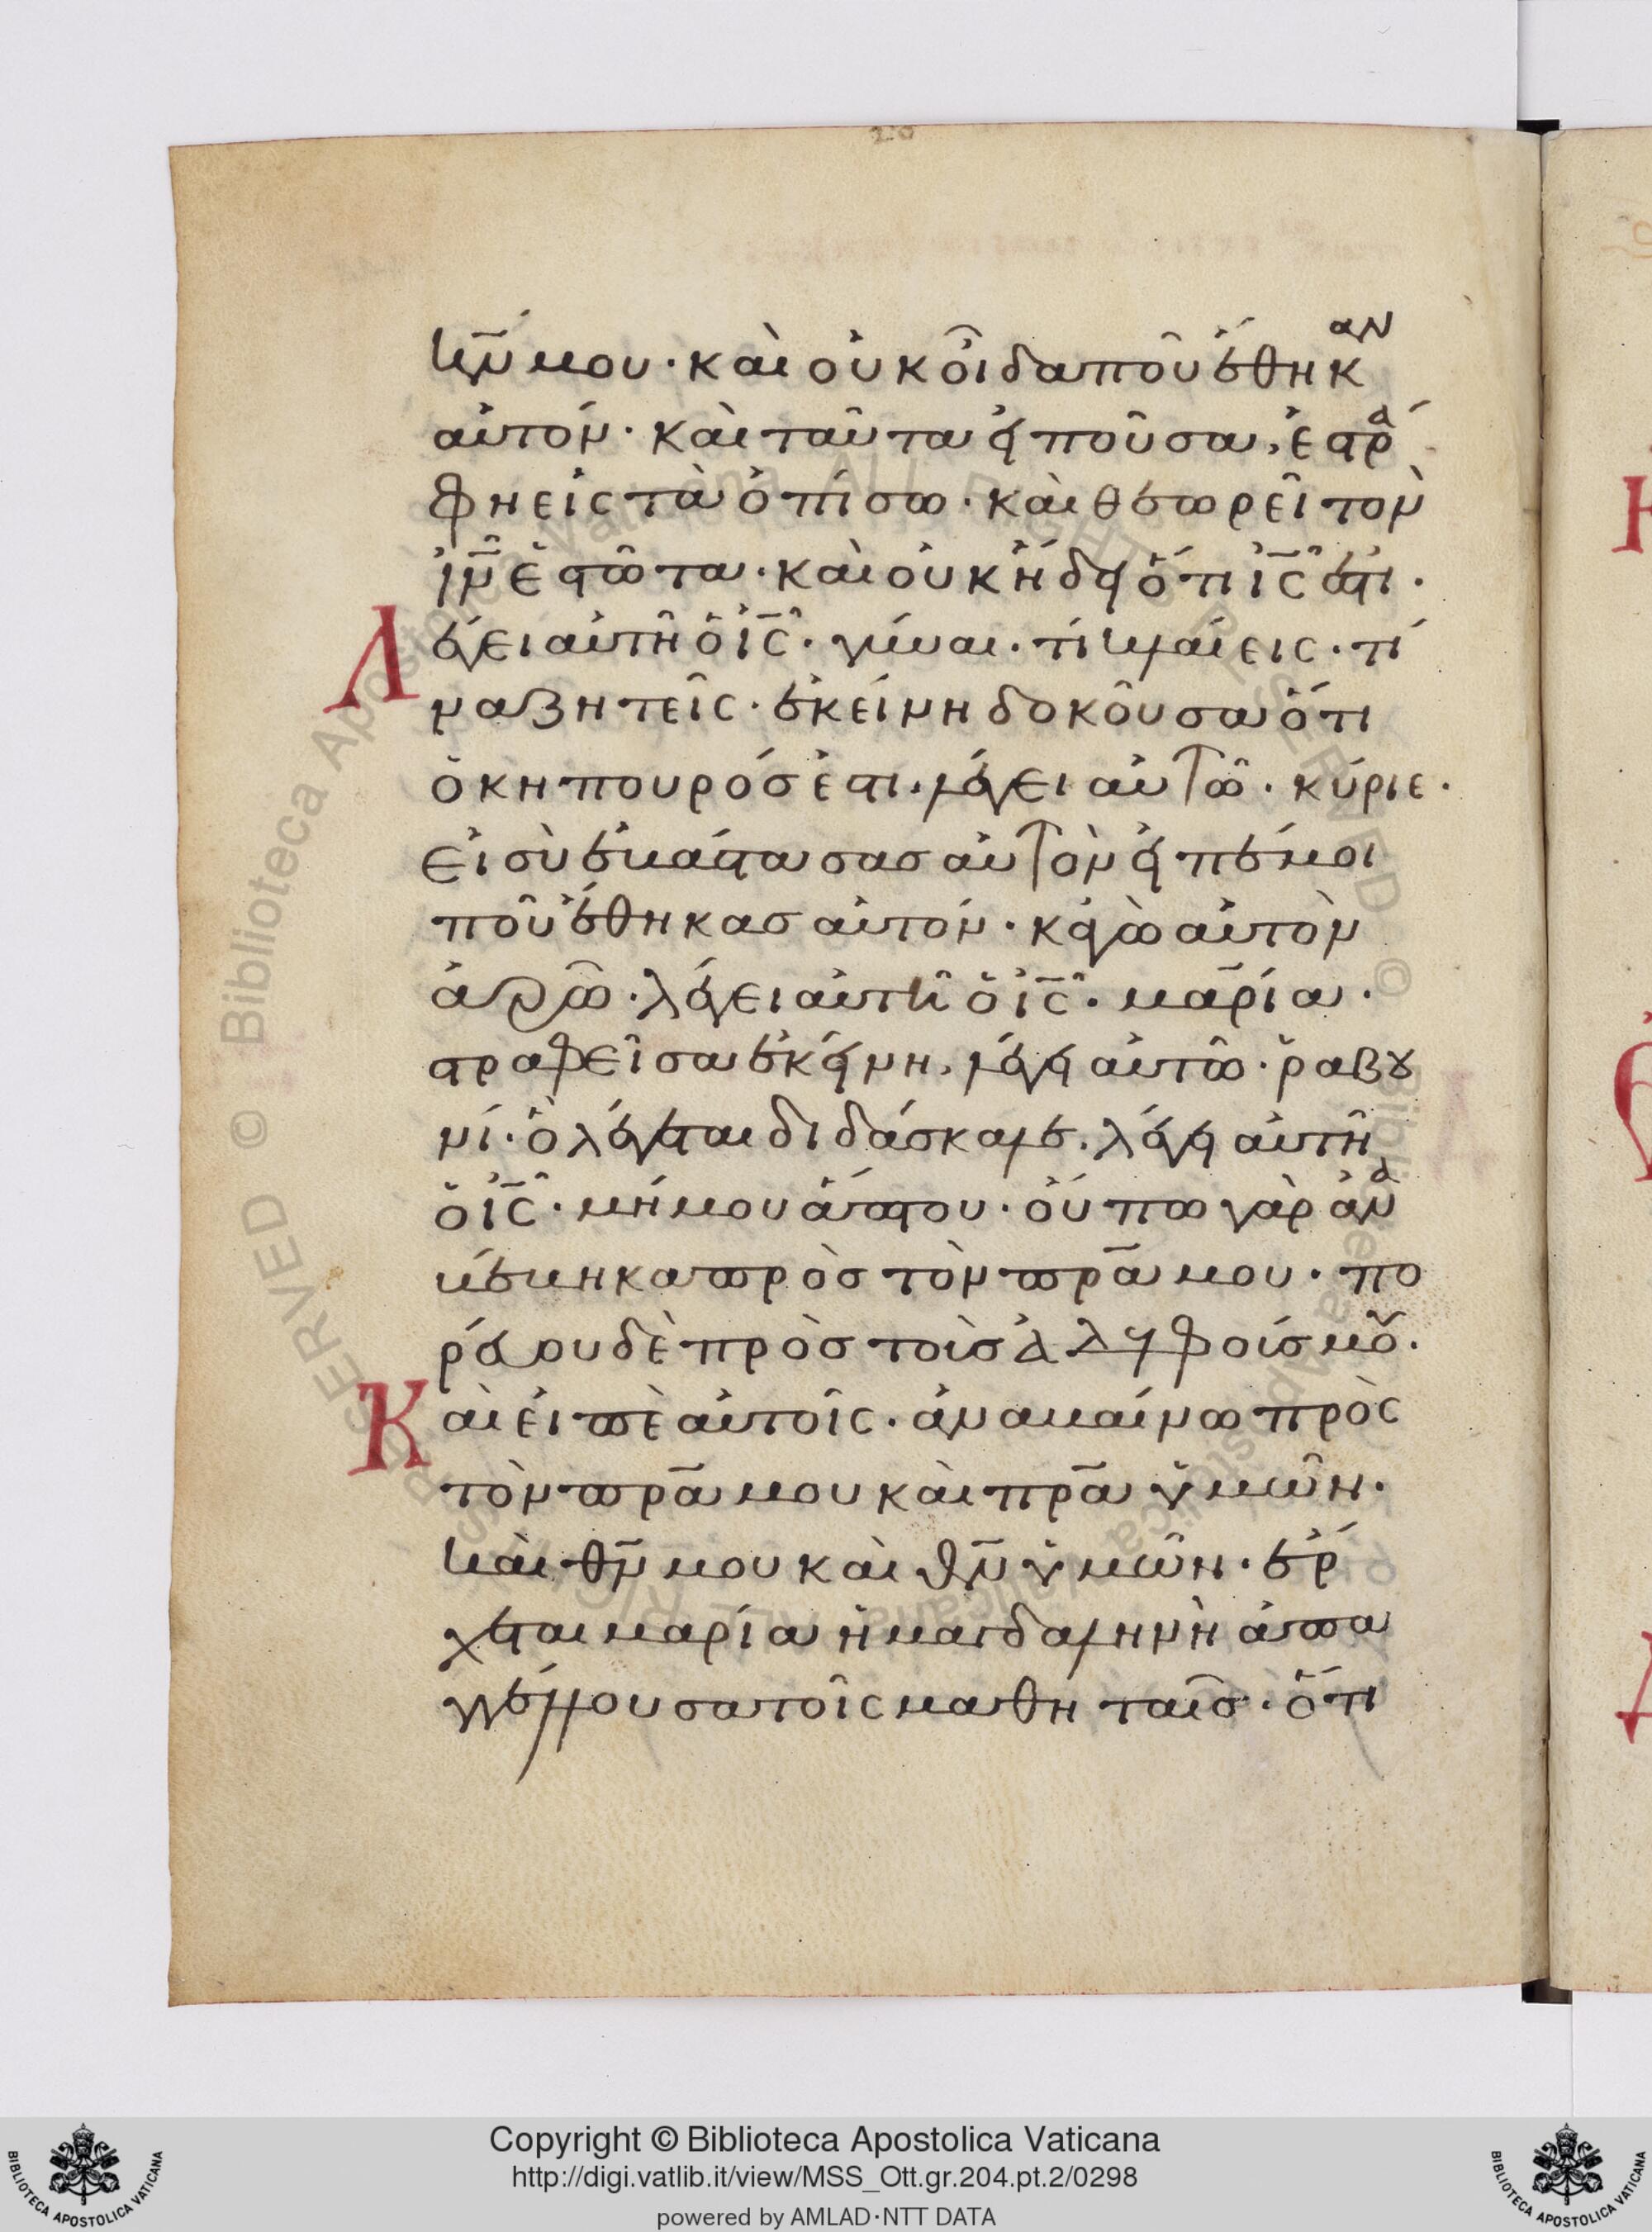 κν̄ μου· καὶ οὐκ οἶδα ποῦ ἔθηκαν
αὐτόν· καὶ ταῦτα εἰποῦσα, ἐστρά
φη εἰς τὰ ὀπίσω· καὶ θεωρεῖ τὸν
ιν̄ ἑστῶτα· καὶ οὐκ ἤδει ὅτι ις̄ ἐστι·
Λέγει αὐτῆ ὁ ις̄· γύναι· τί κλαίεις· τί
να ζητεῖς· ἐκείνη δοκοῦσα ὅτι
ὁ κηπουρός ἐστι· λέγει αὐτῶ· κύριε·
εἰ σὺ ἐβάστασας αὐτὸν εἰπέ μοι
ποῦ ἔθηκας αὐτόν· κἀγὼ αὐτὸν
ἀρῶ· λέγει αὐτῆ ὁ ις̄· μαρία·
στραφεῖσα ἐκείνη, λέγει αὐτῶ· ραβου
νί· ὃ λέγεται διδάσκαλε· λέγει αὐτῆ
ὁ ις̄· μή μου ἅπτου· οὔπω γὰρ ἀνα
βέβηκα πρὸς τὸν πρ̄α μου· πο
ρεύου δὲ πρὸς τοὺς ἀδελφούς μου·
Καὶ εἰπὲ αὐτοῖς· ἀναβαίνω πρὸς
τὸν πρ̄α μου καὶ πρ̄α ὑμῶν·
καὶ θν̄ μου καὶ θν̄ ὑμῶν· ἔρ
χεται μαρία ἡ μαγδαληνὴ ἀπα
γγέλλουσα τοῖς μαθηταῖς· ὅτι
Copyright © Biblioteca Apostolica Vaticana
http://digi.vatlib.it/view/MSS_Ott.gr.204.pt.2/0298
powered by AMLAD·NTT DATA